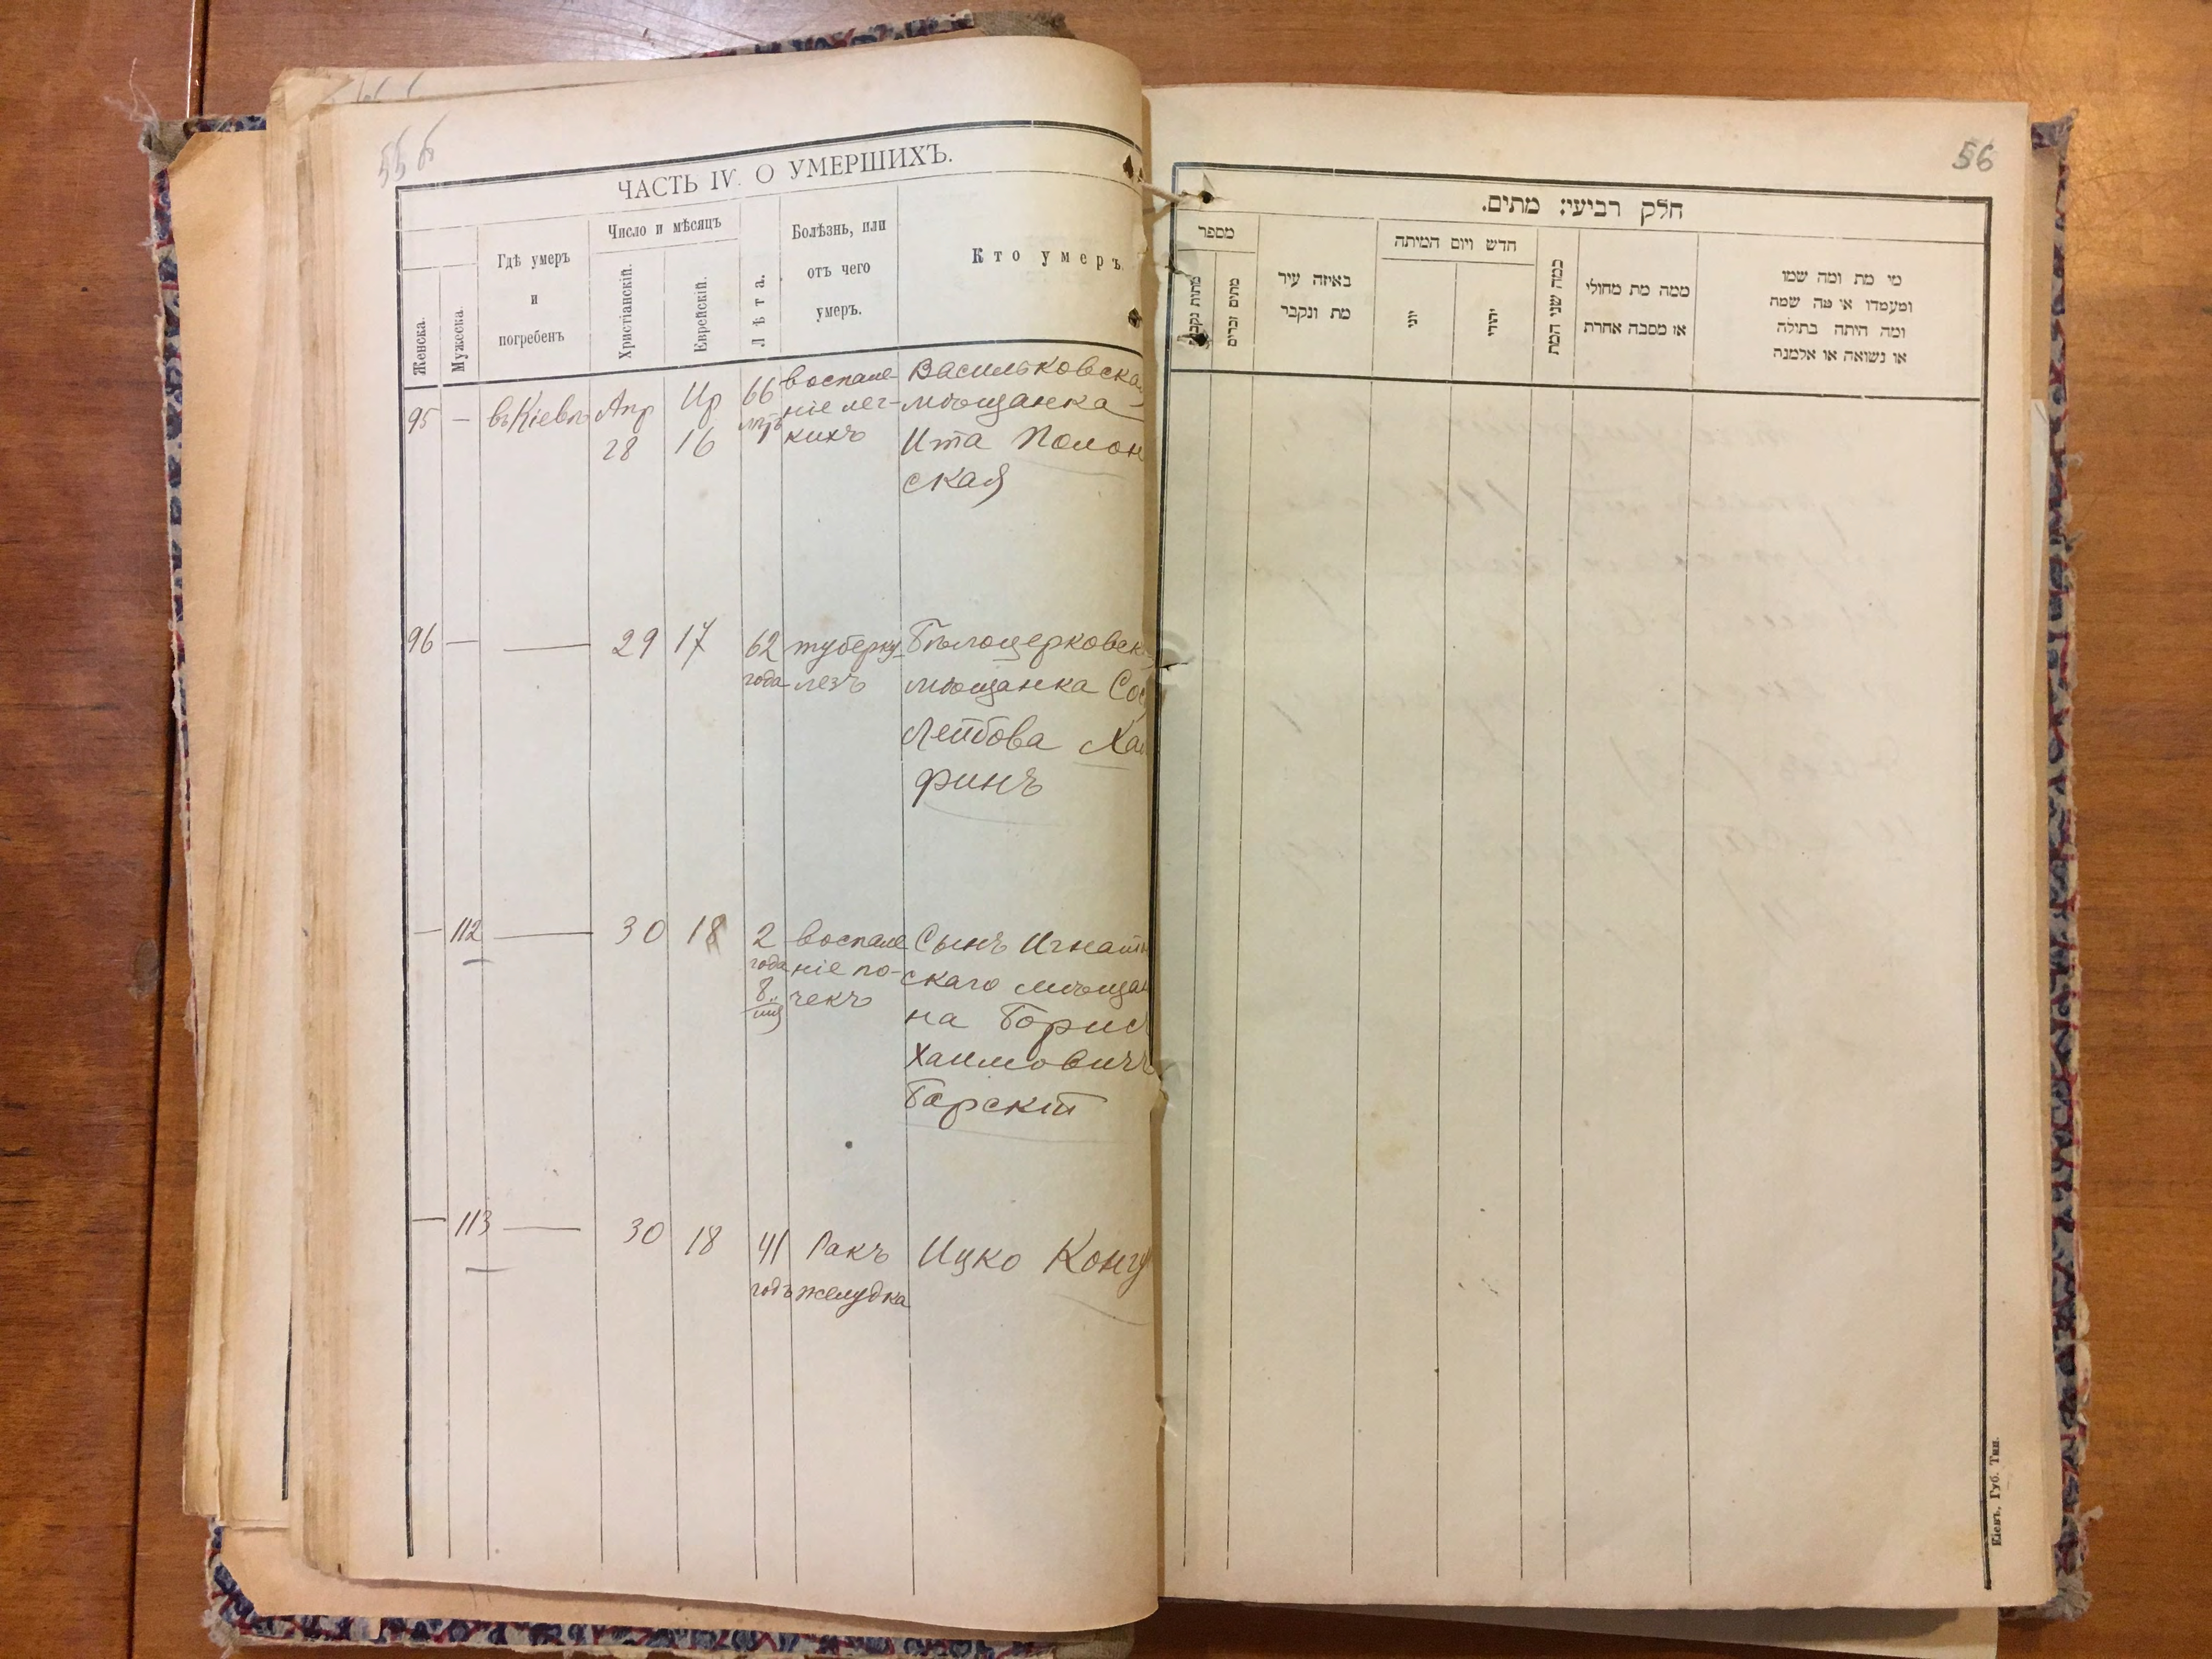 556
ЧАСТЬ IV. О УМЕРШИХЪ.
Женска.
Мужеска.
Гдѣ умеръ
и
погребенъ
Число и мѣсяцъ
Христіанскій.
Еврейскій.
Лѣта.
Болѣзнь, или
отъ чего
умеръ.
Кто умеръ.
95 — въ Кіевѣ Апр 28 Ир 16 66 лѣтъ
воспале-
ніе лег-
кихъ
Васильковская
мѣщанка
Ита Полон
ская
96 — — 29 17 62 года
туберку-
лезъ
Бѣлоцерковск
мѣщанка
Лейбова
финъ
— 112 — 30 18 2 года 8 мц
воспале
ніе по-
чекъ
Сынъ Игнатов
скаго мѣщан
на Борис
Хаимовичъ
Барскій
— 113 — 30 18 41 годъ
Ракъ
желудка
Ицко
56
חלק רביעי: מתים.
מספר
מתות נקבות
מתים זכרים
באיזה עיר
מת ונקבר
חדש ויום המיתה
יוני
יהודי
כמה שני המת
ממה מת מחולי
או מסבה אחרת
מי מת ומה שמו
ומעמדו או מה שמה
ומה היתה בתולה
או נשואה או אלמנה
Кіевъ, Губ. Тип.